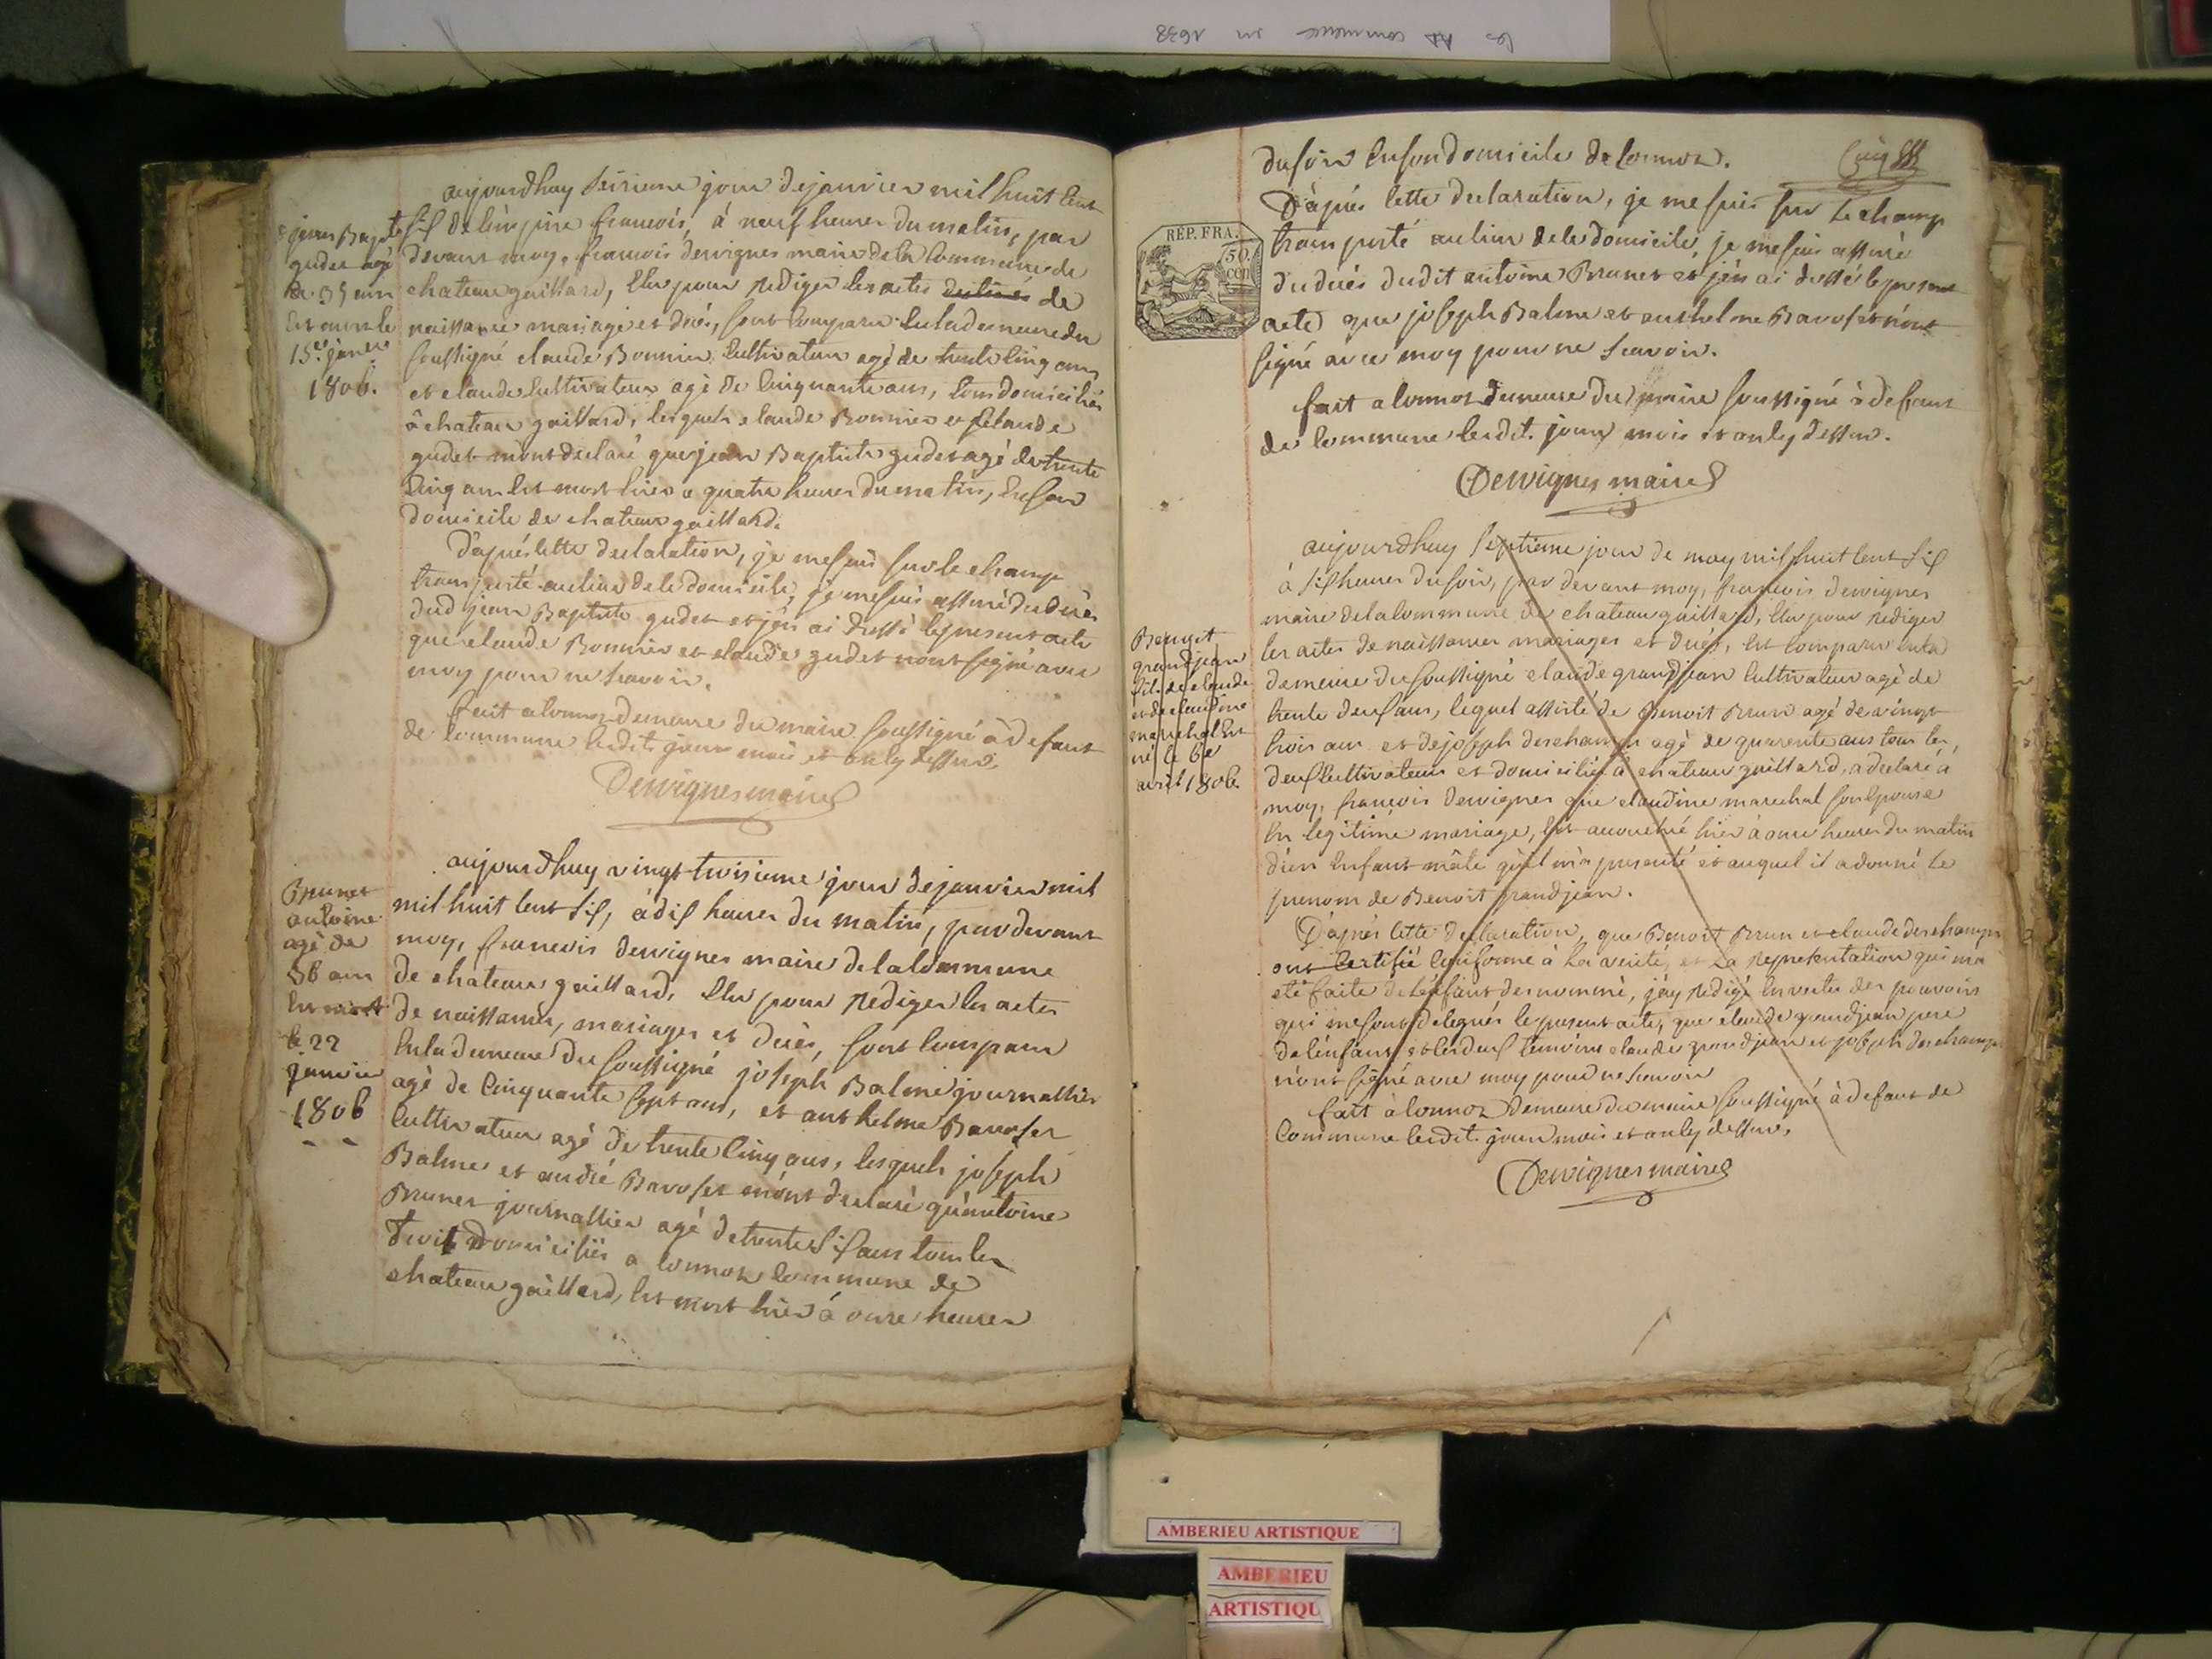 les commence en 1638
jean Bapte
gudet agé
de 35 ans
est mort le
15e janvier
1806.
aujourdhuy seizieme jour de janvier mil huit cent
six de lémpire francois, à neuf heures du matin, par
devant moy, francois dervignes maire de la commune de
chateau gaillard, élu pour rediger les actes destinés de
naissance mariage et décés, sont comparu en la demeure du
soussigné claude Bonnier cultivateur agé de trente cinq ans
et claude cultivateur agé de cinquante ans, tous domiciliés
à chateau gaillard, lesquels claude Bonnier et claude
gudet m'ont declaré que jean Baptiste gudet agé de trente
cinq ans est mort hier a quatre heures du matin, en son
domicile de chateau gaillard.
D'aprés cette declaration, je me suis sur le champ
transporté au lieu de le domicile, je me suis assuré du décès
dud jean Baptiste gudet et jén ai dressé le present acte
que claude Bonnier et claude gudet nont signé avec
moy pour ne scavoir.
fait a lonnoz demeure du maire soussigné à défaut
de commune lesdits jour mois et an cy dessus.
Dervignes maire
Brunet
antoine
agé de
36 ans
est mort
le 22
janvier
1806
aujourdhuy vingt troisieme jour de janvier mil
mil huit cent six, à dix heures du matin, par devant
moy, francois dervignes maire de la commune
de chateau gaillard, élu pour rediger les actes
de naissances, mariages et décès, sont comparu
en la demeure du soussigné joseph Balme journallier
agé de cinquante sept ans, et anthelme Bavoset
cultivateur agé de trente cinq ans, lesquels joseph
Balme et andré Bavoset m'ont declaré qu'antoine
Brunet journallier agé de trente six ans tous les
trois domiciliés a lonnoz commune de
chateau gaillard, est mort hier à onze heures
du soir en son domicile de lonnoz.
Cinq
REP. FRA.
50.
cen
D'aprés cette declaration, je me suis sur le champ
transporté au lieu de le domicile, je me suis assuré
du décés dudit antoine Brunet et jén ai dressé le present
acte que joseph Balme et anthelme Bavoset n'ont
signé avec moy pour ne scavoir.
fait a lonnoz demeure du maire soussigné à defaut
de commune lesdits jour mois et an cy dessus.
Dervignes maire
Benoit
grandjean
fils de claude
et de claudine
marechal est
né le 6e
avril 1806
aujourdhuy septieme jour de may mil huit cent six
à six heures du soir, par devant moy, francois dervignes
maire de la commune de chateau gaillard, élu pour rediger
les actes de naissances mariages et décés, est comparu en la
demeure du soussigné claude grandjean cultivateur agé de
trente deux ans, lequel assisté de Benoit Brun agé de vingt
trois ans et de joseph deschamps agé de quarente ans tous les
deux cultivateurs et domiciliés à chateau gaillard, a declaré à
moy, francois dervignes que claudine marechal son épouse
en legitime mariage, est accouchée hier à onze heures du matin
d'un enfant mâle qu'il m'a presenté et auquel il a donné le
prenom de Benoit grandjean.
D'aprés cette declaration, que Benoit Brun et claude deschamps
ont certifié conforme à la verité, et la representation qui m'a
eté faite de l'enfant denommé, j'ay redigé en vertu des pouvoirs
qui me sont delegués le present acte, que claude grandjean pere
de l'énfant et les deux temoins claude grandjean et joseph deschamps
n'ont signé avec moy pour ne scavoir
fait à lonnoz demeure du maire soussigné à defaut de
commune lesdits jour mois et an cy dessus,
Dervignes maire
AMBERIEU ARTISTIQUE
AMBERIEU
ARTISTIQU